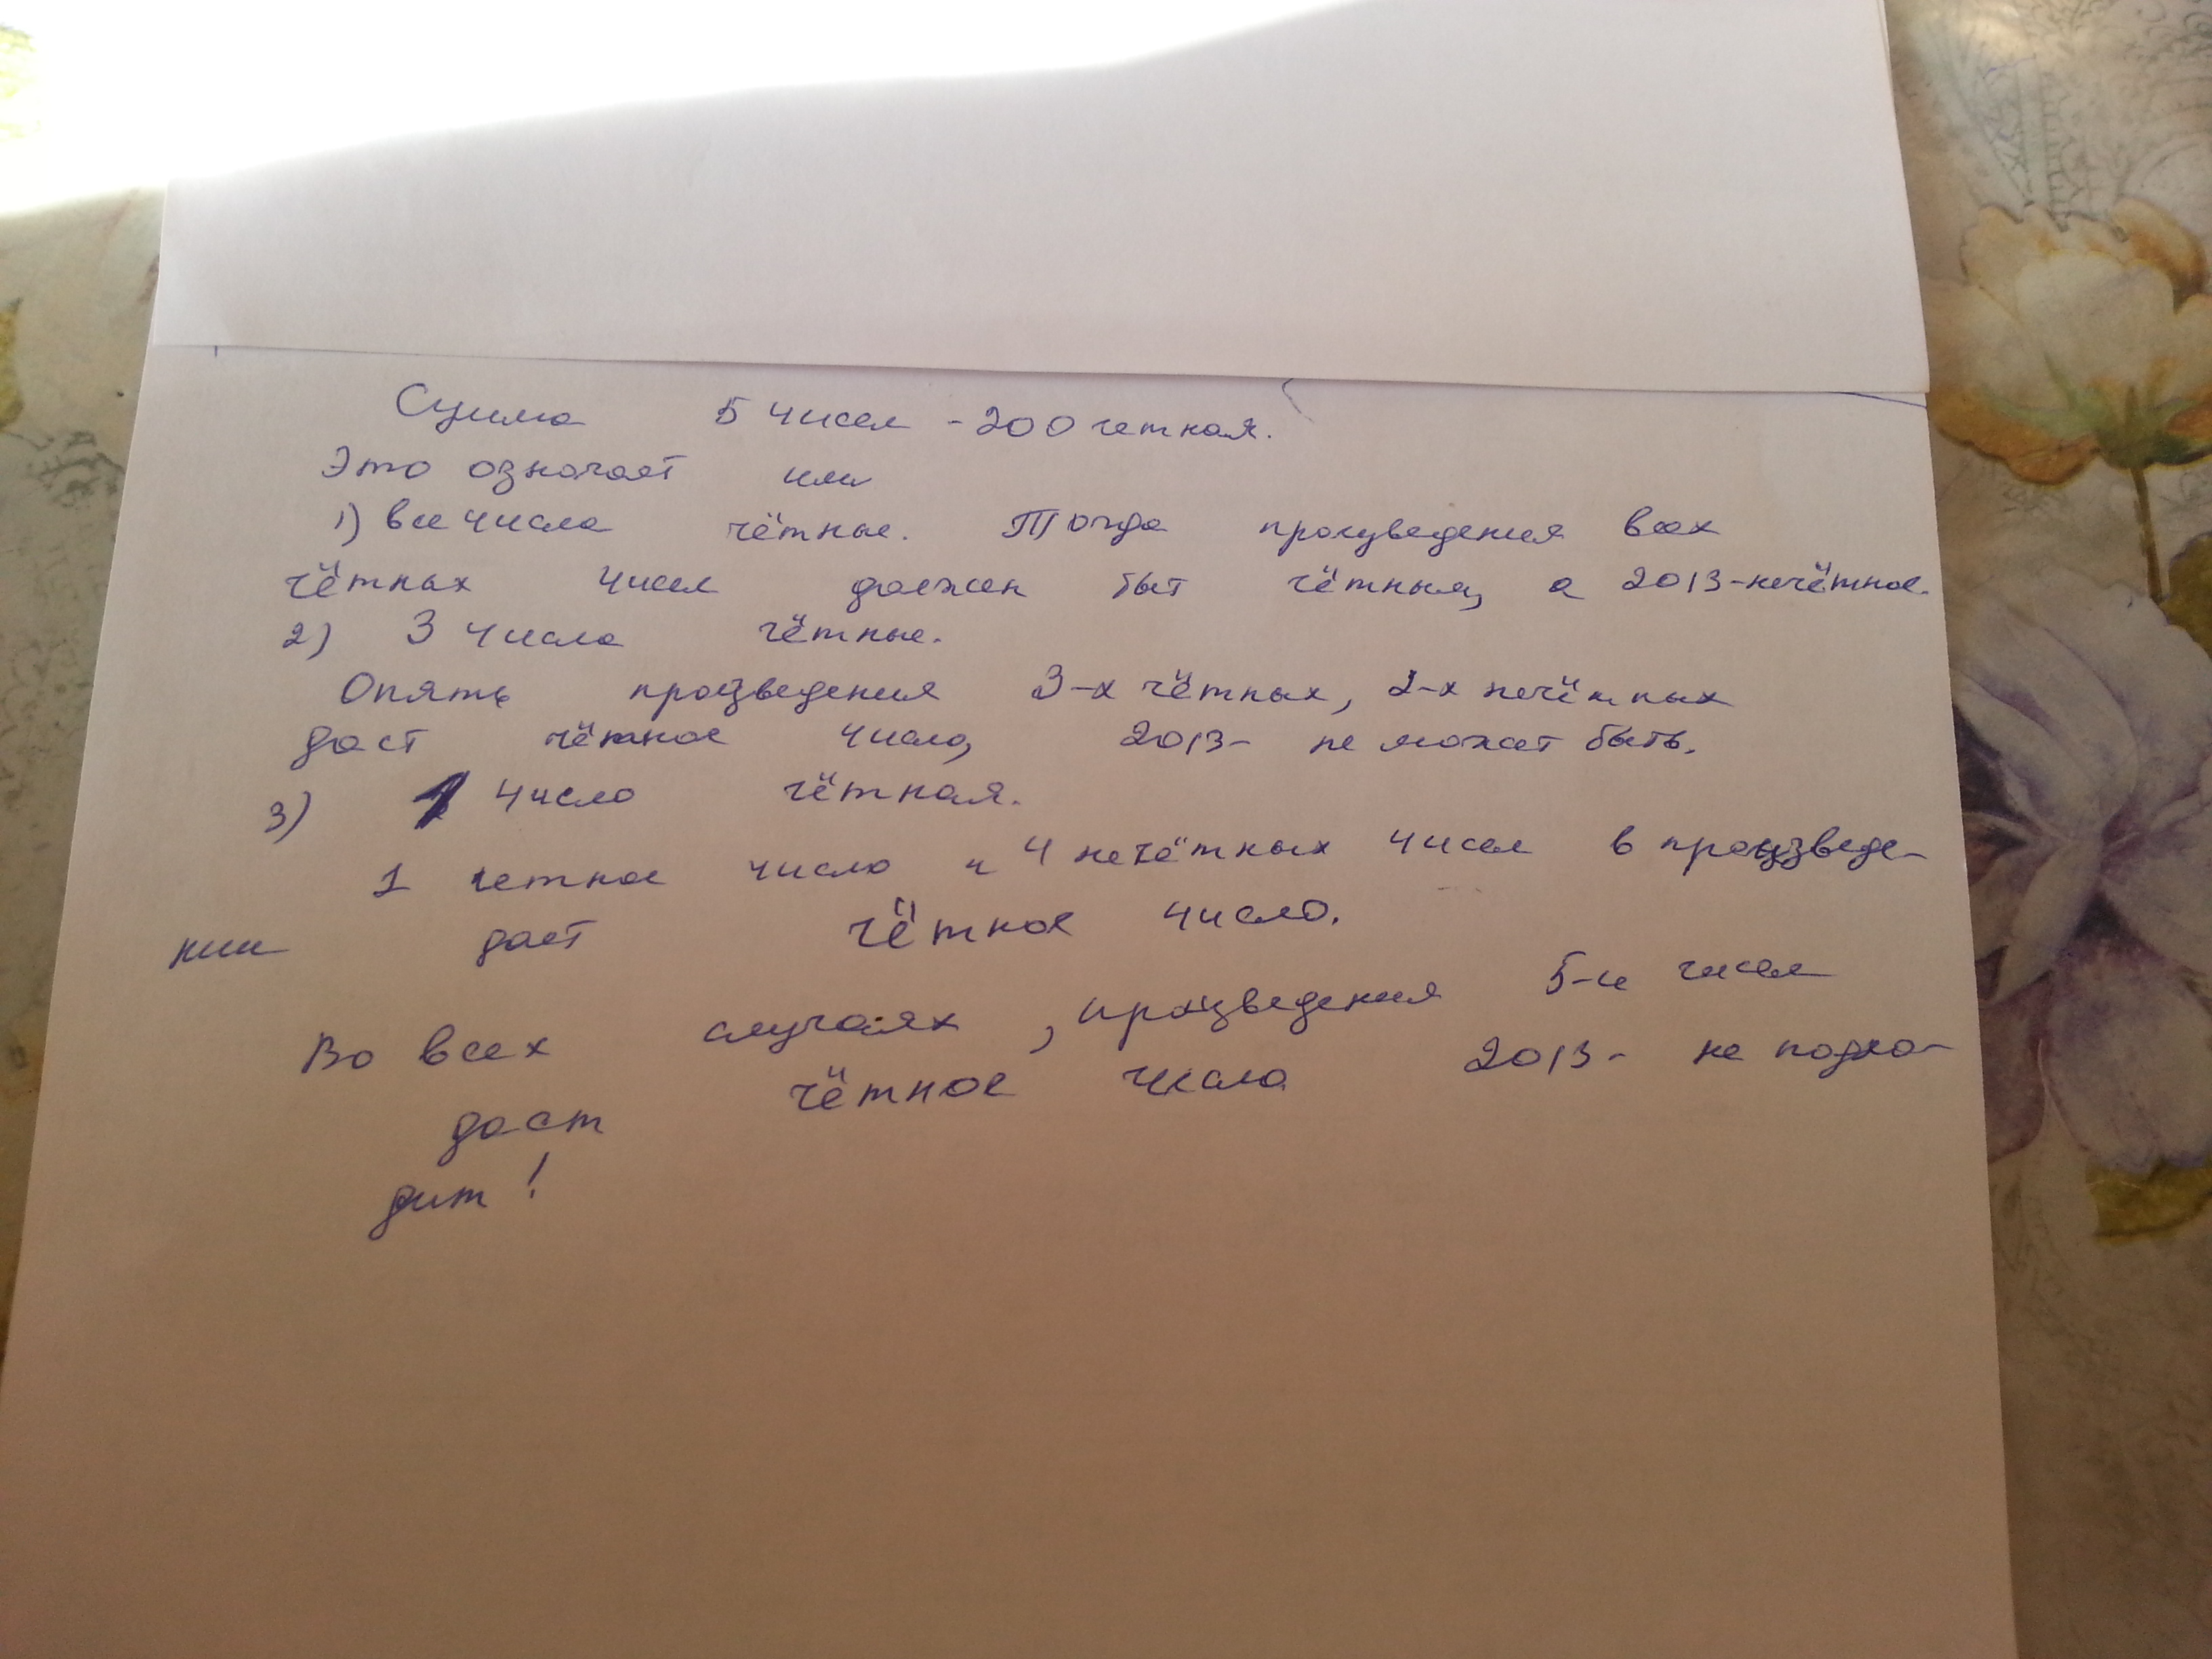 Сумма 5 чисел - 200 четная.
Это означает или
1) все числа чётные. Тогда произведения всех
чётных чисел должен быт чётным, а 2013-нечётное.
2) 3 числа чётные.
Опять произведения 3-х чётных, 2-х нечётных
даст чётное число, 2013- не может быть.
3) 1 число чётная.
1 четное число и 4 нечётных чисел в произведе-
нии дает чётное число.
Во всех случаях, произведения 5-и чисел
даст чётное число 2013- не подхо-
дит!